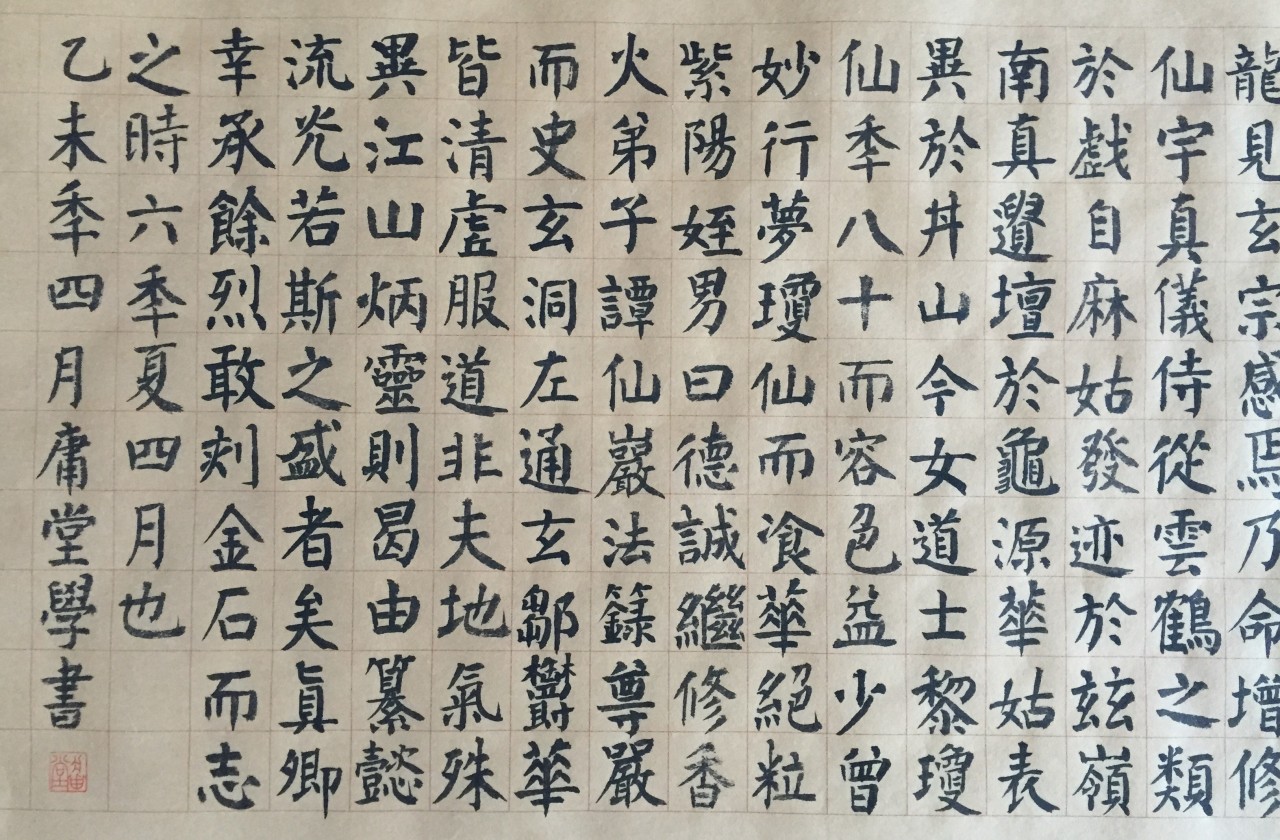 龍見玄宗感焉乃命增修
仙宇真儀侍從雲鶴之類
於戲自麻姑發迹於茲嶺
南真遺壇於龜源華姑表
異於井山今女道士黎瓊
仙秊八十而容色益少曾
妙行夢瓊仙而飡華絕粒
紫陽姪男曰德誠繼修香
火弟子譚仙巖法籙尊嚴
而史玄洞左通玄鄒鬱華
皆清虛服道非夫地氣殊
異江山炳靈則曷由纂懿
流光若斯之盛者矣眞卿
幸承餘烈敢刻金石而志
之時六秊夏四月也
乙未秊四月庸堂學書
庸堂